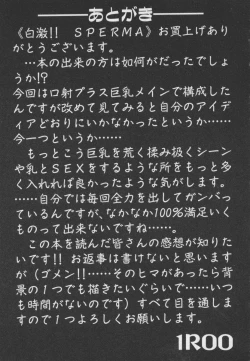 あとがき
《白濁!! SPERMA》お買上げあり
がとうございます。
…本の出来の方は如何がだったでしょ
うか!?
今回は口射プラス巨乳メインで構成した
んですが改めて見てみると自分のアイデ
ィアどおりにいかなかったというか……
今一つというか……
もっとこう巨乳を荒く揉み扱くシーン
や乳とSEXをするような所をもっと多
く入れれば良かったような気がします。
……自分では毎回全力を出してガンバっ
ているんですが、なかなか100%満足いく
ものって出来ないですね……。
この本を読んだ皆さんの感想が知りた
いです!! お返事は書けないと思います
が(ゴメン!!……そのヒマがあったら背
景の1つでも描きたいぐらいで……いつ
も時間がないのです)すべて目を通しま
すので1つよろしくお願いします。
1ROO